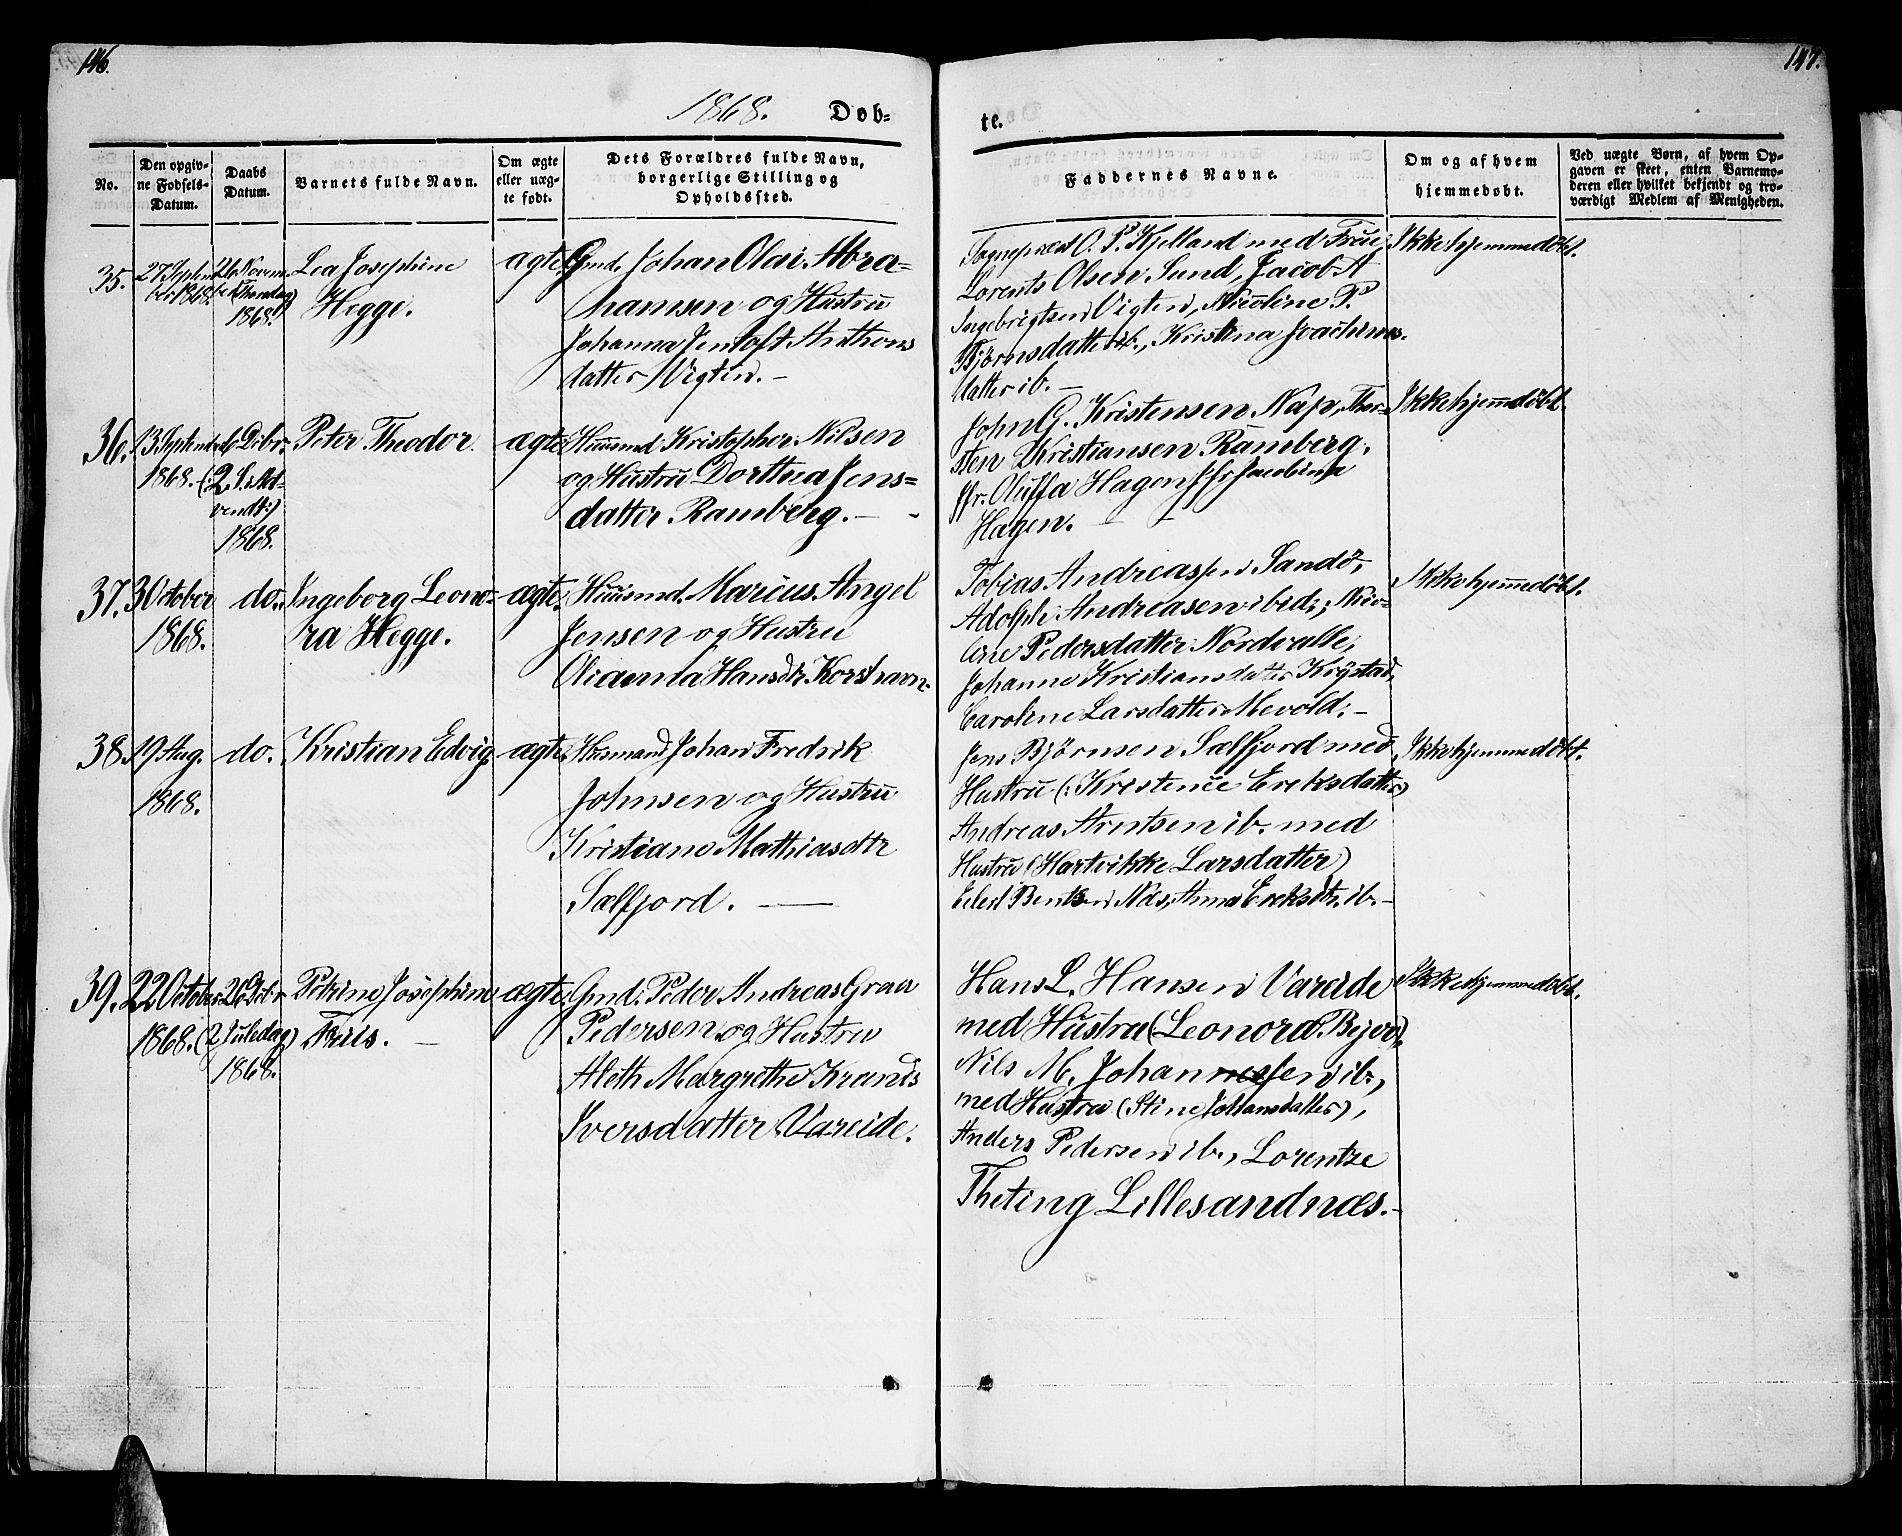 146.
147.
1868. Døb-
te.
No.
Den opgiv-
ne Fødsels-
Datum.
Daabs
Datum.
Barnets fulde Navn.
Om ægte
eller uæg-
te født.
Dets Forældres fulde Navn,
borgerlige Stilling og
Opholdssted.
Faddernes Navne.
Om og af hvem
hjemmedøbt.
Ved uægte Børn, af hvem Op-
gaven er skeet, enten Barnemo-
deren eller hvilket bekjendt og tro-
værdigt Medlem af Menigheden.
35.
27 Septem
ber 1868.
26 Novem-
ber (Torsdag)
1868.
Lea Josephine
Hegge.
ægte
Gmd. Johan Olai Abra-
hamsen og Hustru
Johanna Jentoft Anthons
datter Vigten. -
Sognepræst O. P. Kjelland med Frue,
Lorents Olsen Sund, Jacob A
Ingebrigtsen Vigten, Nicoline P.
Bjørnsdatter ib., Kristina Joachims-
datter ib. -
Ikke hjemmedøbt.
36.
13 Septembr
1868.
6 Debr.
(: 2 S. i Ad-
vendt:)
1868.
Peter Theodor
ægte
Huusmd Kristopher Nilsen
og Hustru Dorthea Jens=
datter Ramberg. -
John G. Kristensen Nap, Thor-
sten Kristiansen Ramberg,
Jfr. Oluffa Hagen, Jfr Jacobine
Hagen. -
Ikke hjemmedøbt.
37.
3 October
1868.
do.
Ingeborg Leono-
ra Hegge.
ægte
Huusmd. Marcus Angel
Jensen og Hustru
Oliaanna Hansdtr Korshavn.
Tobias Andreassen Sandø,
Adolph Andreasen ibid:; Nico-
line Pedersdatter Nordvalle,
Johanne Kristiansdatter Krystad,
Caroline Larsdatter Mevold; -
Ikke hjemmedøbt.
38.
19 Aug.
1868.
do.
Kristian Edvig
ægte
Husmand Johan Fredrik
Johnsen og Hustru
Kristiane Mathiasdtr
Sælfjord. -
Jens Bjørnsen Sælfjord med
Hustru (: Kristence Eriksdatter)
Andreas Arntsen ib. med
Hustru (Hartvikke Larsdatter)
Edert Bentsen Næs, Anna Ereksdtr. ib. -
Ikke hjemmedøbt.
39.
22 October
1868.
26 Debr.
(2 Juledag)
1868.
Petrine Josephine
Friis. -
ægte
Gmd. Peder Andreas Graa
Pedersen og Hustru
Aleth Margrethe Krands
Iversdatter Vareide.
Hans L. Hansen Vareide
med Hustru (Leonora Bejer),
Nils M. Johannessen ib,
med Hustru (Stine Johansdatter),
Anders Pedersen ib., Lorentze
Theting Lillesandnæs. -
Ikke hjemmedøbt.